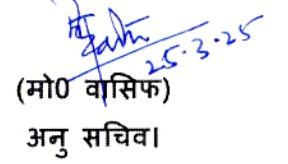 25.3.25
(मो0 वासिफ)
अनु सचिव।